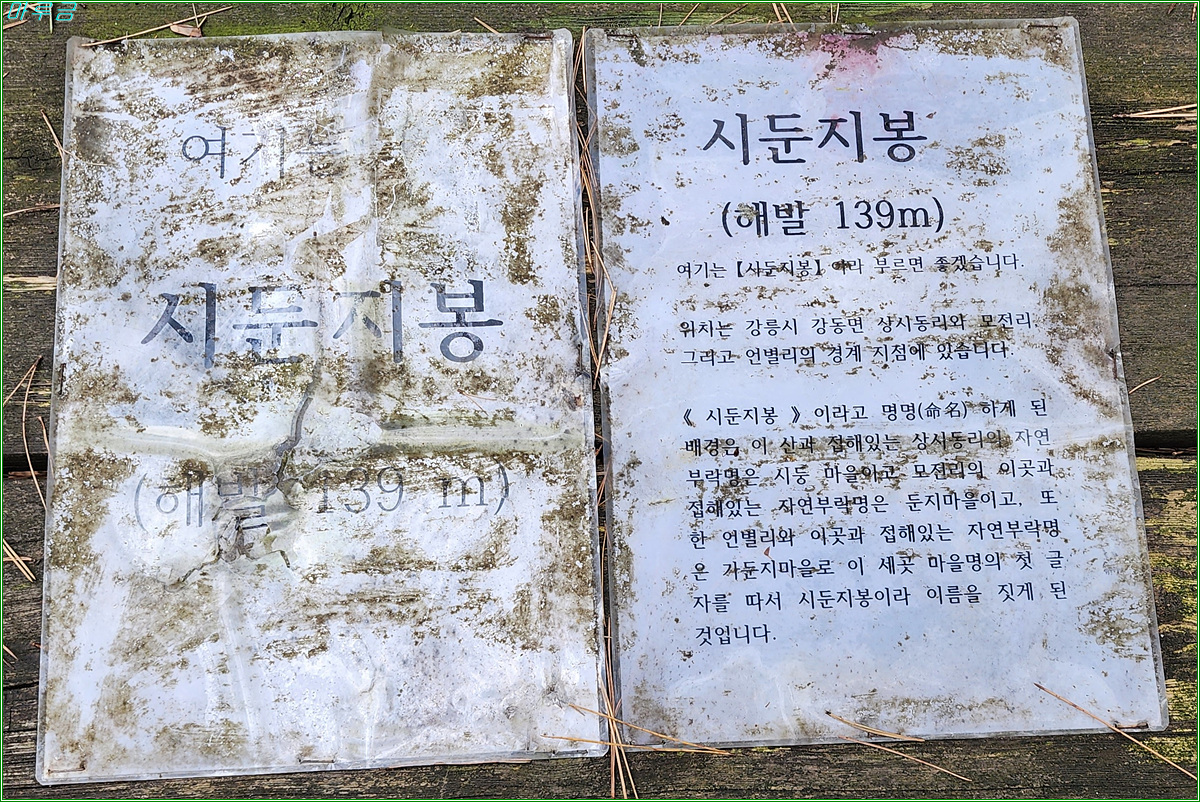 마루금
여기는
시둔지봉
(해발 139 m)
시둔지봉
(해발 139m)
여기는 【시둔지봉】 이라 부르면 좋겠습니다.
위치는 강릉시 강동면 상시동리와 모전리,
그리고 언별리의 경계 지점에 있습니다.
《 시둔지봉 》이라고 명명(命名) 하게 된
배경은 이 산과 접해있는 상시동리의 자연
부락명은 시둥 마을이고 모전리의 이곳과
접해있는 자연부락명은 둔지마을이고, 또
한 언별리와 이곳과 접해있는 자연부락명
은 가둔지마을로 이 세곳 마을명의 첫 글
자를 따서 시둔지봉이라 이름을 짓게 된
것입니다.